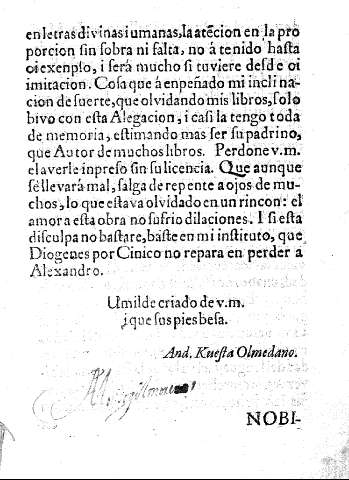 en letras divinas i umanas, la atẽcion en la pro
porcion sin sobra ni falta, no á tenido hasta
oi exenplo, i será mucho si tuviere desde oi
imitacion. Cosa que á enpeñado mi incli na-
cion de suerte, que olvidando mis libros, solo
bivo con esta Alegacion, i casi la tengo toda
de memoria, estimando mas ser su padrino,
que Autor de muchos libros. Perdone v.m.
el averle inpreso sin su licencia. Que aunque
sé llevará mal, salga de repente a ojos de mu-
chos, lo que estava olvidado en un rincon: el
amor a esta obra no sufrio dilaciones. I si esta
disculpa no bastare, baste en mi instituto, que
Diogenes por Cinico no repara en perder a
Alexandro.
Umilde criado de v.m.
i que sus pies besa.
And. Kuesta Olmedano.
NOBI-